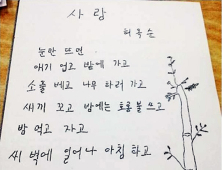 사랑
허옥순
눈만 뜨면
애기 업고 밭에 가고
소풀 베고 나무 하러 가고
새끼 꼬고 밤에는 호롱불 쓰고
밥 먹고 자고
새벽에 일어나 아침 하고